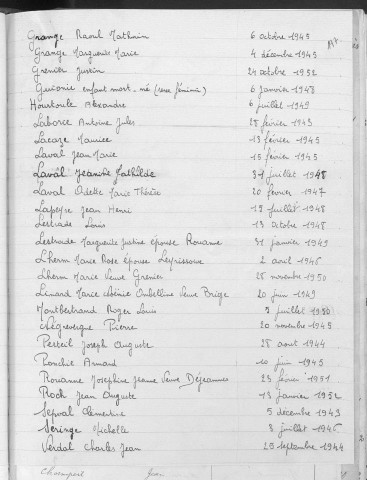 Grange Raoul Mathurin 6 octobre 1945
Grange Marguerite Marie 4 décembre 1945
Grenier Justin 24 octobre 1952
Guionie enfant mort-né (sexe féminin) 6 janvier 1948
Hourtoule Alexandre 6 juillet 1949
Laborie Antoine Jules 28 février 1943
Lacaze Maurice 13 février 1945
Laval Jean Marie 15 février 1945
Laval Mathilde 31 juillet 1948
Laval Odette Marie Thérèse 20 février 1947
Lapeyre Jean Henri 12 juillet 1948
Lestrade Louis 13 octobre 1948
Lestrade Marguerite Justine épouse Rouanne 31 janvier 1949
Lherm Marie Rose épouse Leyrissoux 2 avril 1946
Lherm Marie Veuve Grenier 28 novembre 1950
Linard Marie Ombelline Veuve Brige 20 juin 1949
Montbertrand Roger Louis juillet 1950
Nègrevergne Pierre 20 novembre 1945
Perteil Joseph Auguste 28 aout 1944
Ponchet Armand 10 juin 1945
Rouanne Josephine Jeanne Veuve Déjeannes 23 février 1951
Roch Jean Auguste 13 janvier 1952
Sepval Clémentine 5 décembre 1949
Séringe Michelle 8 juillet 1946
Verdal Charles Jean 25 septembre 1944
Jean